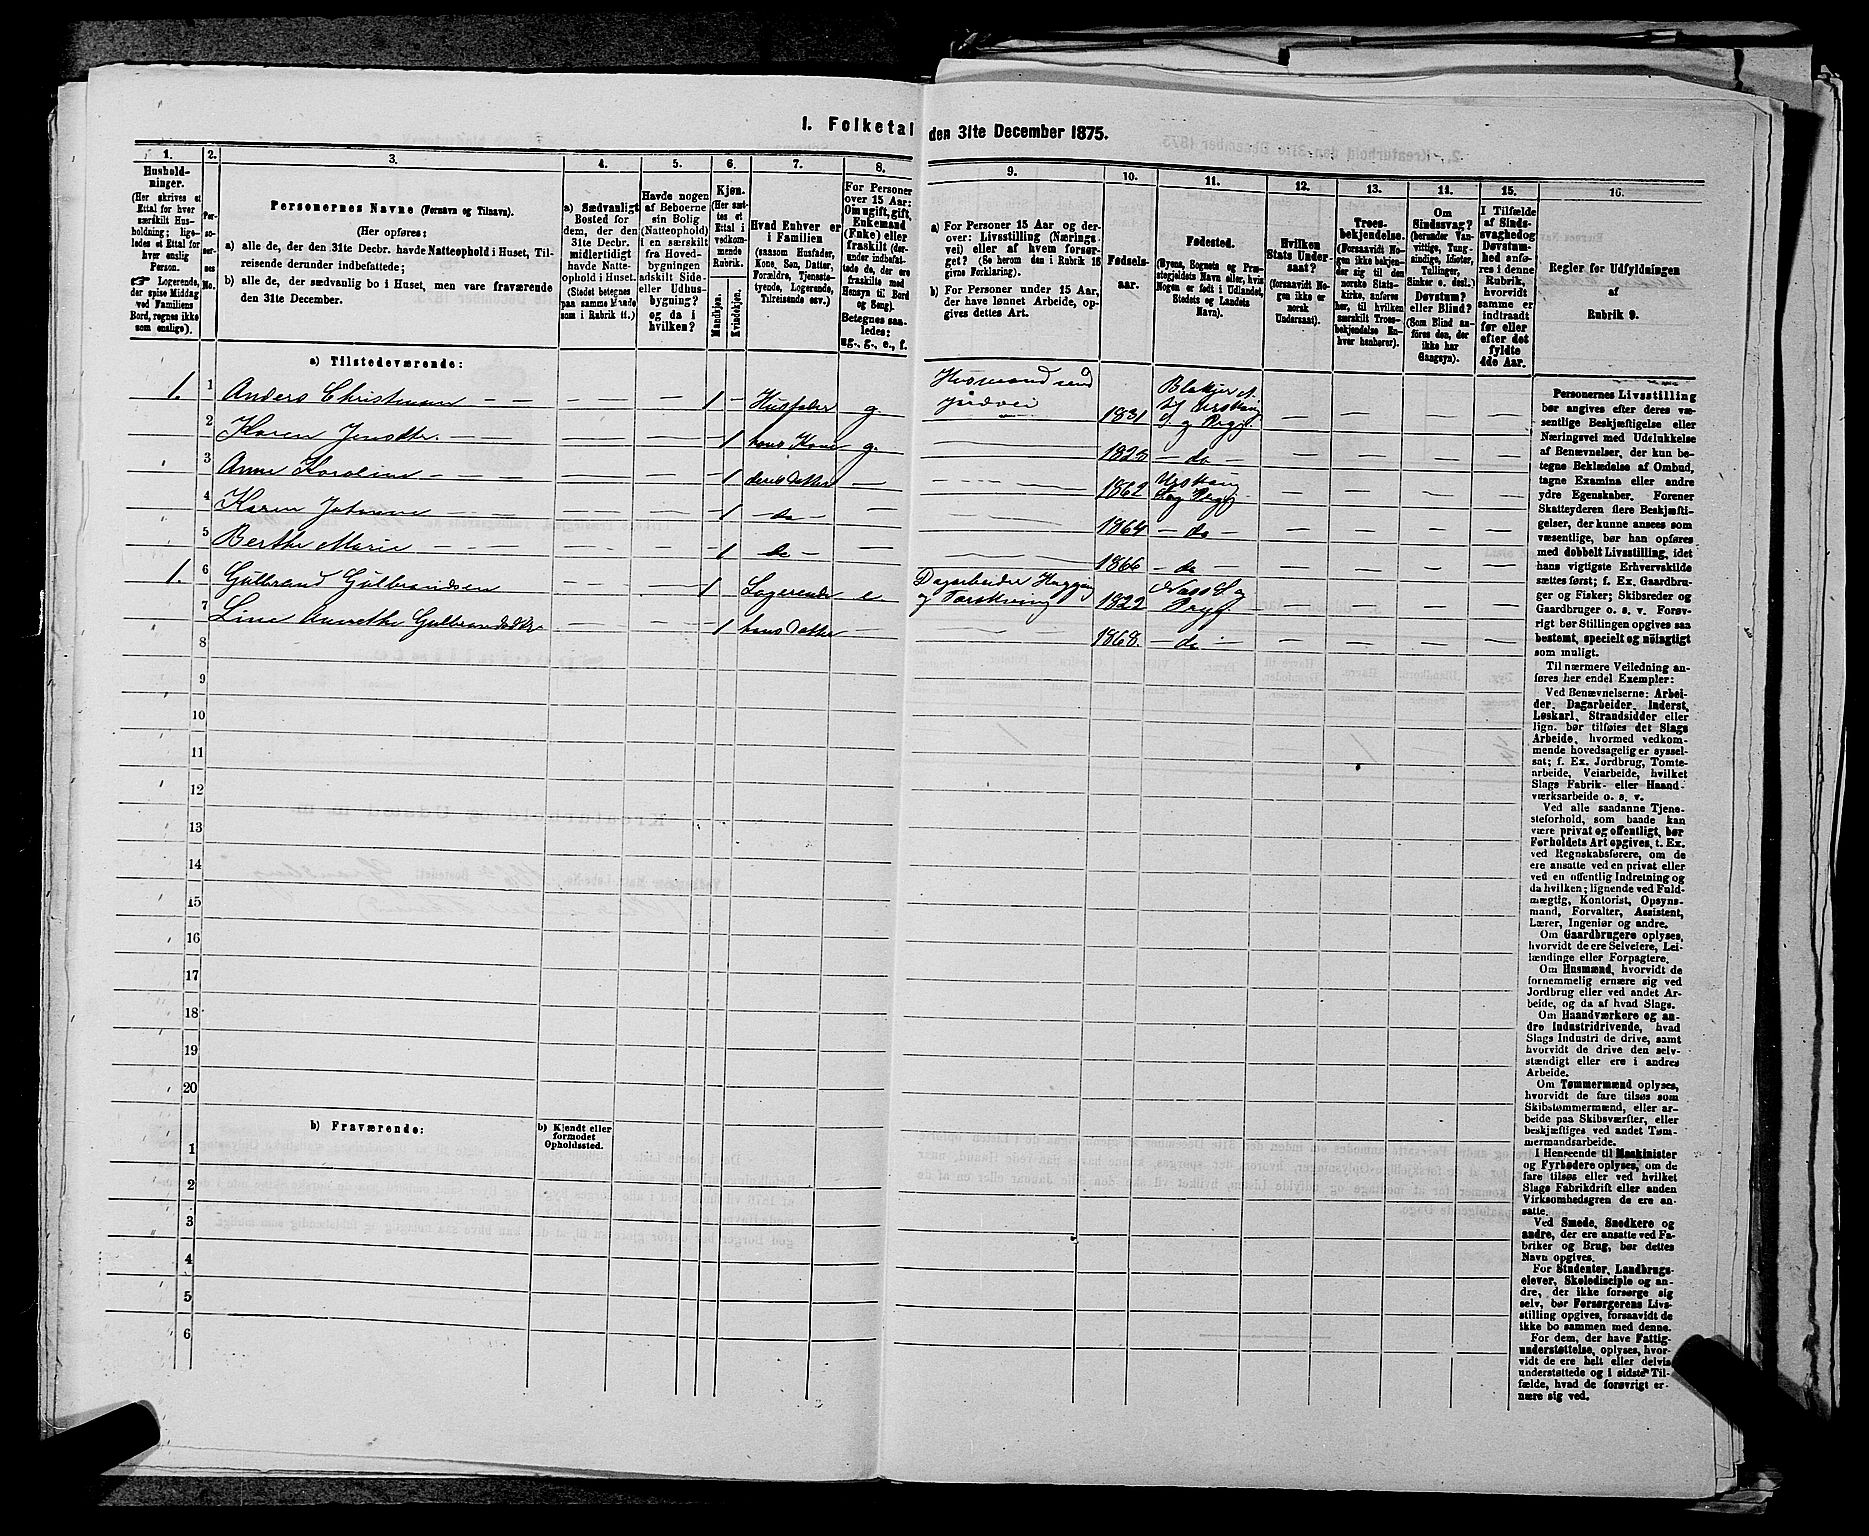 I. Folketal den 31te December 1875.
1. 2. 3. 4. 5. 6. 7. 8. 9. 10. 11. 12. 13. 14. 15. 16.
Hushold-
ninger.
(Her skrives et
Ettal for hver
særskilt Hus-
holdning; lige-
ledes et Ettal for
hver enslig
Person.
☞ Logerende,
der spise Middag
ved Familiens
Bord, regnes ikke
som enslige).
Per-
so-
ner-
nes
No.
Personernes Navne (Fornavn og Tilnavn).
(Her opføres:
a) alle de, der den 31te Decbr. havde Natteophold i Huset, Til-
reisende derunder indbefattede;
b) alle de, der sædvanlig bo i Huset, men vare fraværende
den 31te December.
a) Sædvanligt
Bosted for
dem, der den
31te Decbr.
midlertidigt
havde Natte-
ophold i Huset.
(Stedet betegnes
paa samme Maade
som i Rubrik 11.)
Havde nogen
af Beboerne
sin Bolig
(Natteophold)
i en særskilt
fra Hoved-
bygningen
adskilt Side-
eller Udhus-
bygning?
og da i
hvilken?
Kjøn.
(Her sæt-
tes et
Ettal i
vedkom-
mende
Rubrik.
Mandkjøn.
Kvindekjøn.
Hvad Enhver er
i Familien
(saasom Husfader,
Kone, Søn, Datter,
Forældre, Tjeneste-
tyende, Logerende,
Tilreisende osv.)
For Personer
over 15 Aar:
Om ugift, gift,
Enkemand
(Enke) eller
fraskilt (der-
under indbefat-
tede de, der ere
fraskilte med
Hensyn til Bord
og Seng).
Betegnes saa-
ledes:
ug., g., e., f.
a) For Personer 15 Aar og der-
over: Livsstilling (Nærings-
vei) eller af hvem forsør-
get? (Se herom den i Rubrik 16
givne Forklaring).
b) For Personer under 15 Aar,
der have lønnet Arbeide, op-
gives dettes Art.
Fødsels-
aar.
Fødested.
(Byens, Sognets og Præ-
stegjeldets Navn eller, hvis
Nogen er født i Udlandet,
Stedets og Landets
Navn).
Hvilken
Stats Under-
saat?
(forsaavidt No-
gen ikke er
norsk
Undersaat).
Troes-
bekjendelse.
(Forsaavidt No-
gen ikke bekjen-
der sig til den
norske Stats-
kirke, anføres
her, til hvilken
særskilt Troes-
bekjendelse En-
hver henhører).
Om
Sindssvag?
(herunder Van-
vittige, Tung-
sindige, Idioter,
Tullinger,
Sinker o. desl.)
Døvstum?
eller Blind?
(Som Blind an-
føres den, der
ikke har
Gangsyn).
I Tilfælde
af Sinds-
svaghed og
Døvstum-
hed anfø-
res i denne
Rubrik,
hvorvidt
samme er
indtraadt
før eller
efter det
fyldte
4de Aar.
Regler for Udfyldningen
af
Rubrik 9.
a) Tilstedeværende:
1. 1 Anders Christensen — — — 1 — Husfader g. Husmand med Jordvei 1831
2 Karen Jensdtr. — — — 1 hans Kone g. — 1823 — do —
3 Anne Karoline — — — 1 deres Datter — — 1862
4 Karen Johanne — — — 1 — do — — — 1864 — do —
5 Berthe Marie — — — 1 do — — — 1866 — do —
1. 6 Gulbrand Gulbrandsen — — 1 Logerende e. Dagarbeider 1822
7 Line Annethe Gulbrandsdtr — — 1 hans Datter — — 1868. — do —
8
9
10
11
12
13
14
15
16
17
18
19
20
b) Fraværende:
b) Kjendt eller
formodet
Opholdssted.
1
2
3
4
5
6
Personernes Livsstilling
bør angives efter deres væ-
sentlige Beskjæftigelse eller
Næringsvei med Udelukkelse
af Benævnelser, der kun be-
tegne Beklædelse af Ombud,
tagne Examina eller andre
ydre Egenskaber. Forener
Skatteyderen flere Beskjæfti-
gelser, der kunne ansees som
væsentlige, bør han opføres
med dobbelt Livsstilling, idet
hans vigtigste Erhvervskilde
sættes først; f. Ex. Gaardbru-
ger og Fisker; Skibsreder og
Gaardbruger o. s. v. Forøv-
rigt bør Stillingen opgives saa
bestemt, specielt og nøiagtigt
som muligt.
Til nærmere Veiledning an-
føres her endel Exempler:
Ved Benævnelserne: Arbei-
der, Dagarbeider, Inderst,
Løskarl, Strandsidder eller
lign. bør tilføies det Slags
Arbeide, hvormed vedkom-
mende hovedsagelig er syssel-
sat; f. Ex. Jordbrug, Tomte-
arbeide, Veiarbeide, hvilket
Slags Fabrik- eller Haand-
værksarbeide o. s. v.
Ved alle saadanne Tjene-
steforhold, som baade kan
være privat og offentligt, bør
Forholdets Art opgives, t. Ex.
ved Regnskabsførere, om de
ere ansatte ved en privat eller
ved en offentlig Indretning og
da hvilken; lignende ved Fuld-
mægtig, Kontorist, Opsyns-
mand, Forvalter, Assistent,
Lærer, Ingeniør og andre.
Om Gaardbrugere oplyses,
hvorvidt de ere Selveiere, Lei-
lændinge eller Forpagtere.
Om Husmænd, hvorvidt de
fornemmelig ernære sig ved
Jordbrug eller ved andet Ar-
beide, og da af hvad Slags.
Om Haandværkere og an-
dre Industridrivende, hvad
Slags Industri de drive, samt
hvorvidt de drive den selv-
stændigt eller ere i andres
Arbeide.
Om Tømmermænd oplyses,
hvorvidt de fare tilsøs som
Skibstømmermænd, eller ar-
beide paa Skibsværfter, eller
beskjæftiges ved andet Tøm-
mermandsarbeide.
I Henseende til Maskinister
og Fyrbødere oplyses, om de
fare tilsøs eller ved hvilket
Slags Fabrikdrift eller anden
Virksomhedsgren de ere an-
satte.
Ved Smede, Snedkere og
andre, der ere ansatte ved Fa-
briker og Brug, bør dettes
Navn opgives.
For Studenter, Landbrugs-
elever, Skoledisciple og an-
dre, der ikke forsørge sig
selv, bør Forsørgerens Livs-
stilling opgives, forsaavidt de
ikke bo sammen med denne.
For dem, der have Fattig-
understøttelse, oplyses, hvor-
vidt de ere helt eller delvis
understøttede og i sidste Til-
fælde, hvad de forøvrigt er-
nære sig ved.